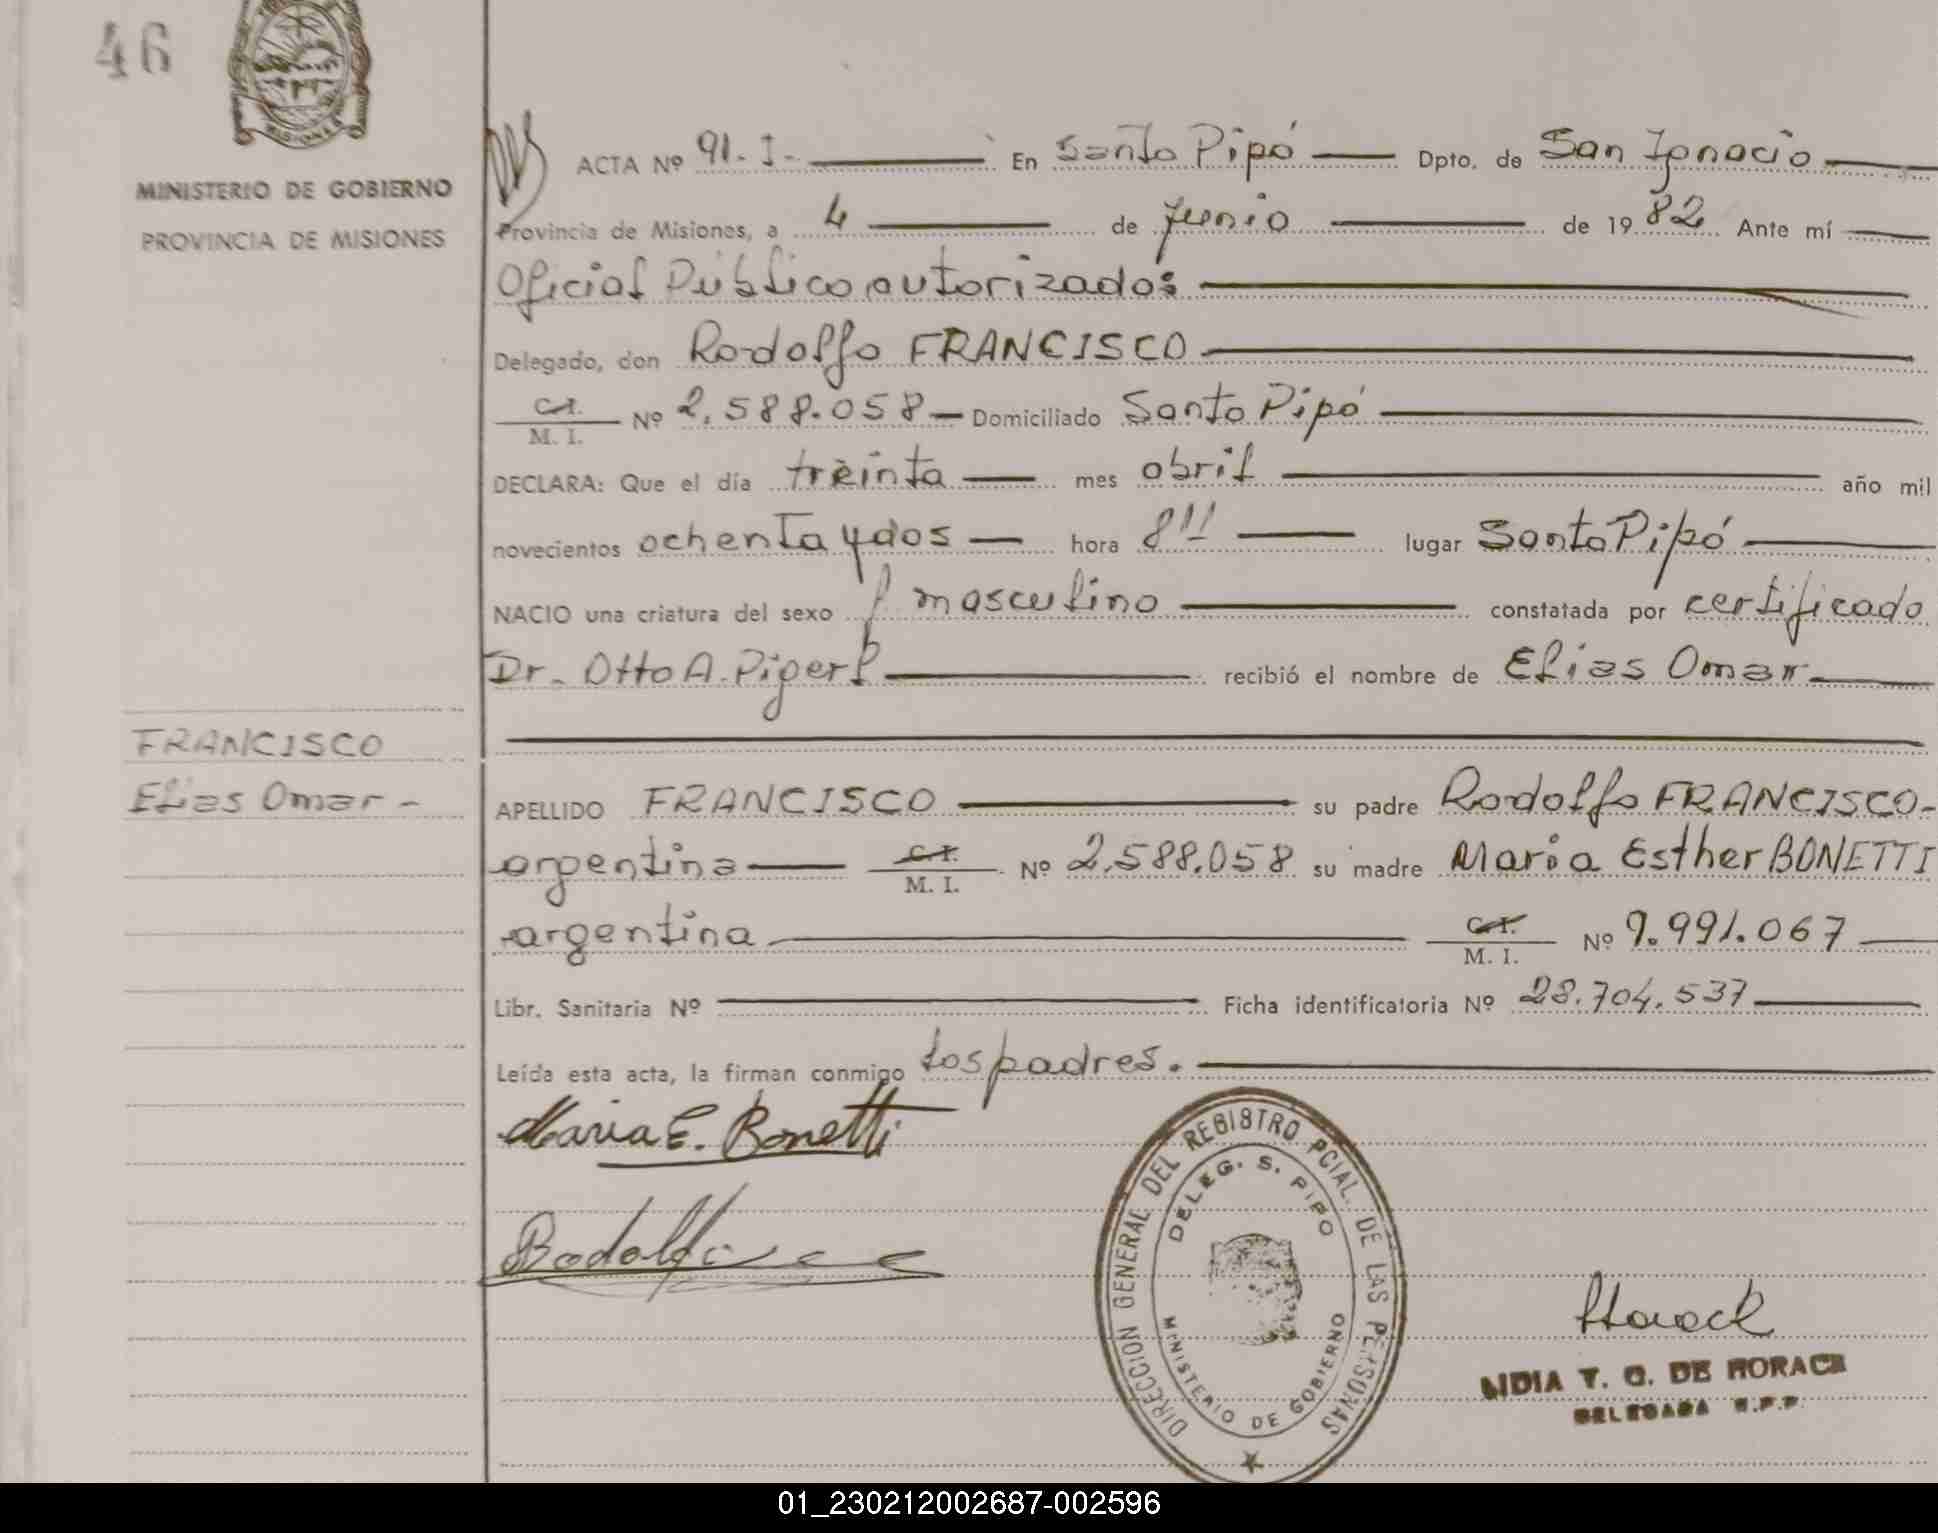 46
MISIONES
MINISTERIO DE GOBIERNO
PROVINCIA DE MISIONES
FRANCISCO
Elias Omar -
ACTA Nº 91-I- En Santo Pipó Dpto. de San Ignacio
Provincia de Misiones, a 4 de junio de 1982 Ante mí
Oficial Público autorizados
Delegado, don Rodolfo FRANCISCO
C.I.
M. I. Nº 2.588.058 Domiciliado Santo Pipó
DECLARA: Que el día treinta mes abril año mil
novecientos ochenta y dos hora 8 lugar Santo Pipó
NACIO una criatura del sexo masculino constatada por certificado
Dr. Otto A. recibió el nombre de Elias Omar
APELLIDO FRANCISCO su padre Rodolfo FRANCISCO-
argentina C.I. M. I. Nº 2.588.058 su madre Maria Esther BONETTI
argentina C.I. M. I. Nº 9.991.067
Libr. Sanitaria Nº Ficha identificatoria Nº 28.704.537
Leída esta acta, la firman conmigo los padres.
Maria E. Bonetti
DIRECCION GENERAL DEL REGISTRO PCIAL. DE LAS PERSONAS
DELEG. S. PIPO
MINISTERIO DE GOBIERNO
T. G. DE
DELEGADA
01_230212002687-002596